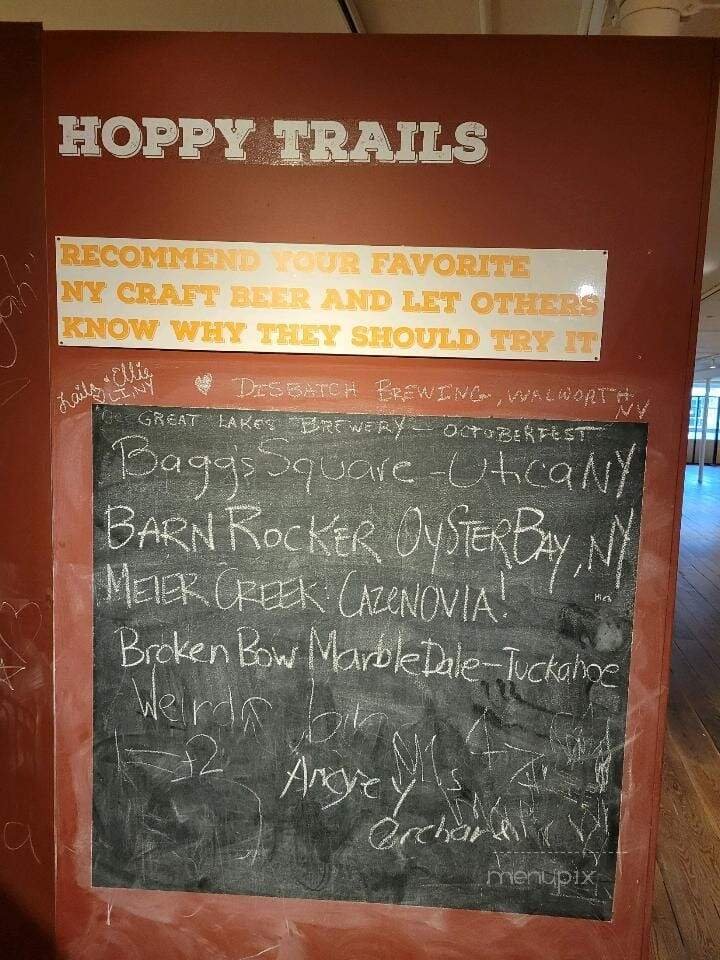 HOPPY TRAILS
RECOMMEND YOUR FAVORITE
NY CRAFT BEER AND LET OTHERS
KNOW WHY THEY SHOULD TRY IT
Ellie
LI, NY
DISBATCH BREWING, WALWORTH
NY
GREAT LAKES BREWERY - OCTOBERFEST
Baggs Square - Utica NY
BARN ROCKER OYSTER BAY, NY
MEIER CREEK: CAZENOVIA!
Broken Bow Marble Dale - Tuckahoe
Angry
Orchard
menupix